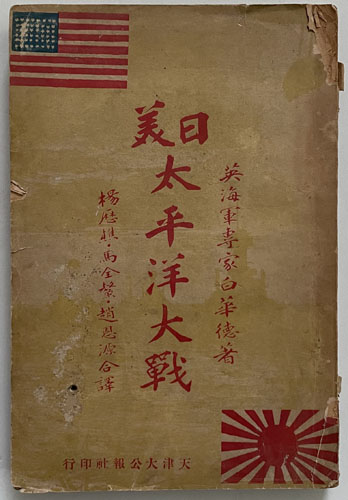 日美
太平洋大戰
英海軍專家白華德著
楊歷樵·馬全·趙恩源合譯
天津大公報社印行